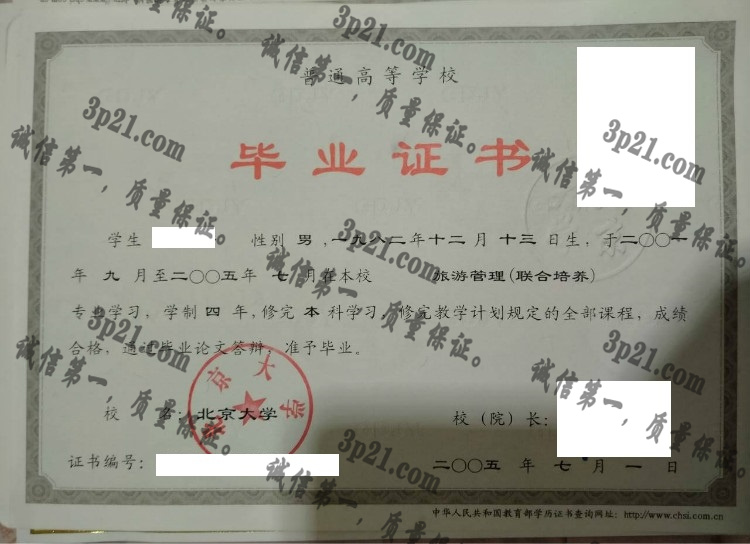 普通高等学校
毕业证书
学生 性别 男 ,一九八二年十二月 十三 日生，于二〇〇一
年 九 月至二〇〇五年 七 月在本校 旅游管理(联合培养)
专业学习，学制 四 年，修完 本 科学习，修完教学计划规定的全部课程，成绩
合格，通过毕业论文答辩，准予毕业。
校 名：北京大学 校（院）长：
证书编号： 二〇〇五 年 七 月 一 日
中华人民共和国教育部学历证书查询网址：http://www.chsi.com.cn
京大学
3p21.com
诚信第一，质量保证。
3p21.com
诚信第一，质量保证。
3p21.com
诚信第一，质量保证。
3p21.com
诚信第一，质量保证。
3p21.com
诚信第一，质量保证。
3p21.com
诚信第一，质量保证。
3p21.com
诚信第一，质量保证。